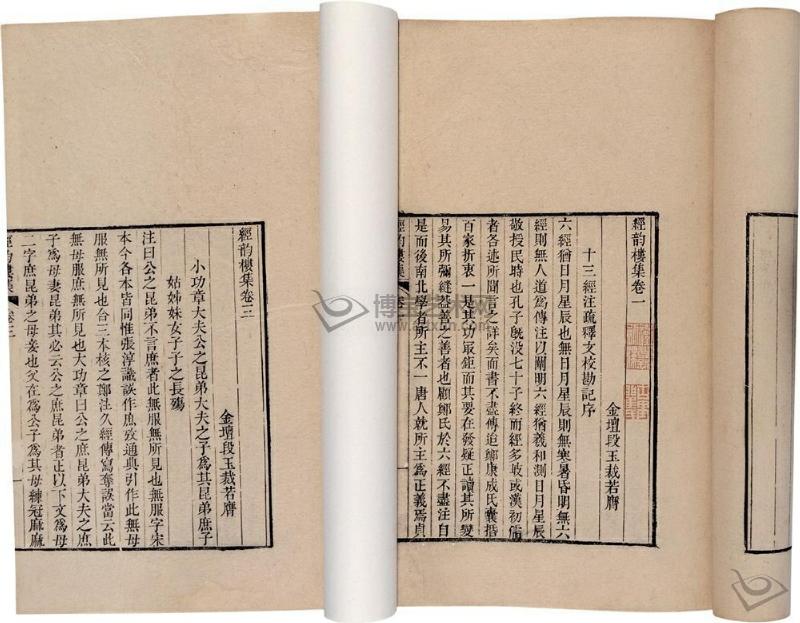 經韵樓集卷一
金壇段玉裁若膺
十三經注疏釋文校勘記序
六經猶日月星辰也無日月星辰則無寒暑昏明無六
經則無人道爲傳注以闡明六經猶羲和測日月星辰
敬授民時也孔子旣没七十子終而經多歧或漢初儒
者各述所聞言之詳矣而書不盡傳迨鄭康成氏囊括
百家折衷一是其功取鉅而其要在發疑正讀其所變
易其所彌縫益善之善者也顧鄭氏於六經不盡注自
是而後南北學有所主不一唐人就所主爲正義焉貞
經韵樓集
卷一
經韵樓集卷三
金壇段玉裁若膺
小功章大夫公之昆弟大夫之子爲其昆弟庶子
姑姊妹女子子之長殤
注曰公之昆弟不言庶者此無服無所見也無服字宋
本今各本皆同惟張淳識誤作庶攷通典引作此無母
服無所見也合三本核之鄭注久經傳寫奪誤當云此
無母服庶無所見也大功章曰公之庶昆弟大夫之庶
子爲母妻昆弟其必云公之庶昆弟者正以下文爲母
二字庶昆弟之母妾也父在爲公子爲其母練冠麻麻
經韵樓集
卷三
博宝艺术网
artxun.com